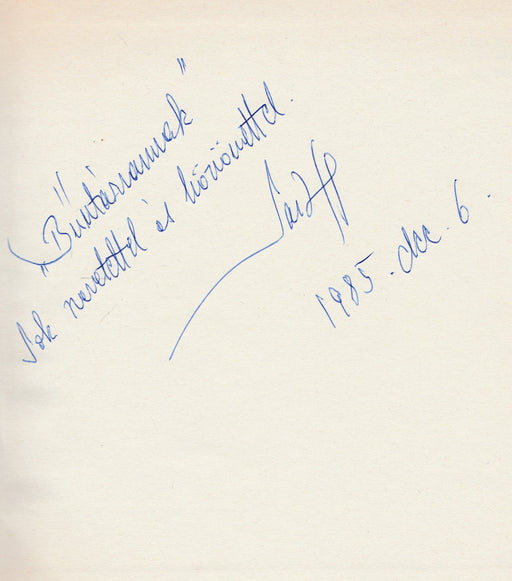 „Bűntársamnak”
Sok szeretettel és köszönettel.
1985. dec. 6.